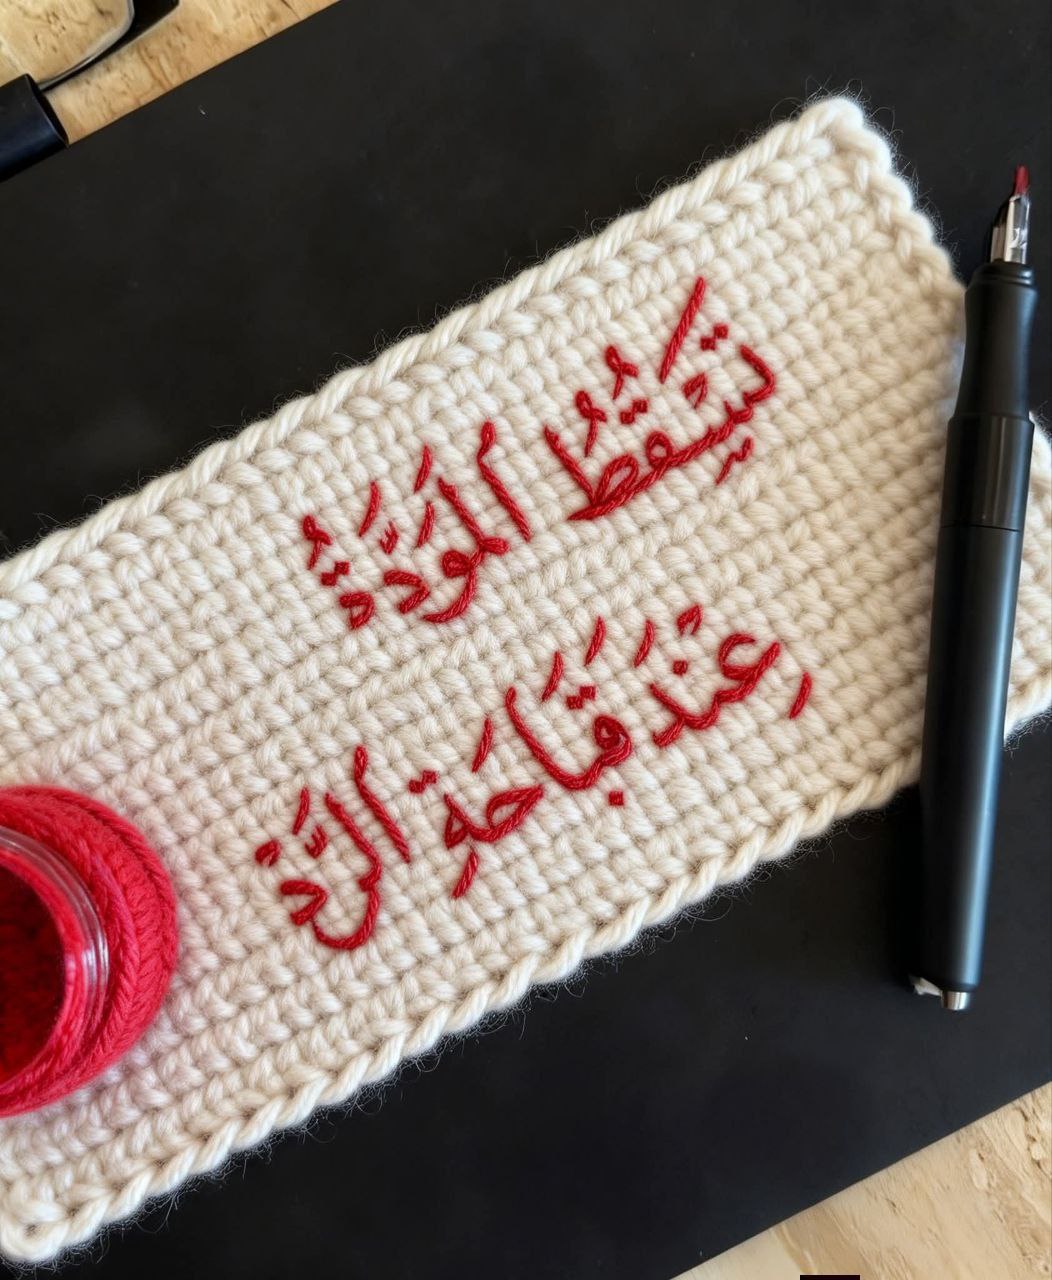 تَسْقُطُ المَوَدَّةُ
عِنْدَ قَبَاحَةِ الرَّدْ